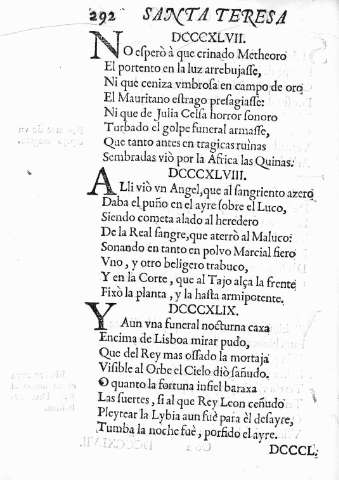 292 SANTA TERESA
DCCCXLVII.
NO esperò à que crinado Metheoro
El portento en la luz arrebujasse,
Ni que ceniza vmbrosa en campo de oro
El Mauritano estrago presagiasse:
Ni que de Julia Celsa horror sonoro
Turbado el golpe funeral armasse,
Que tanto antes en tragicas ruìnas
Sembradas viò por la Africa las Quinas.
DCCCXLVIII.
ALli viò vn Angel, que al sangriento azero
Daba el puño en el ayre sobre el Luco,
Siendo cometa alado al heredero
De la Real sangre, que aterrò al Maluco:
Sonando en tanto en polvo Marcial fiero
Vno, y otro beligero trabuco,
Y en la Corte, que al Tajo alça la frente
Fixò la planta, y la hasta armipotente.
DCCCXLIX.
Y Aun vna funeral nocturna caxa
Encima de Lisboa mirar pudo,
Que del Rey mas ossado la mortaja
Visible al Orbe el Cielo diò sañudo.
O quanto la fortuna infiel baraxa
Las suertes, si al que Rey Leon ceñudo
Pleytear la Lybia aun fuè para èl desayre,
Tumba la noche fuè, porfido el ayre.
DCCCL.